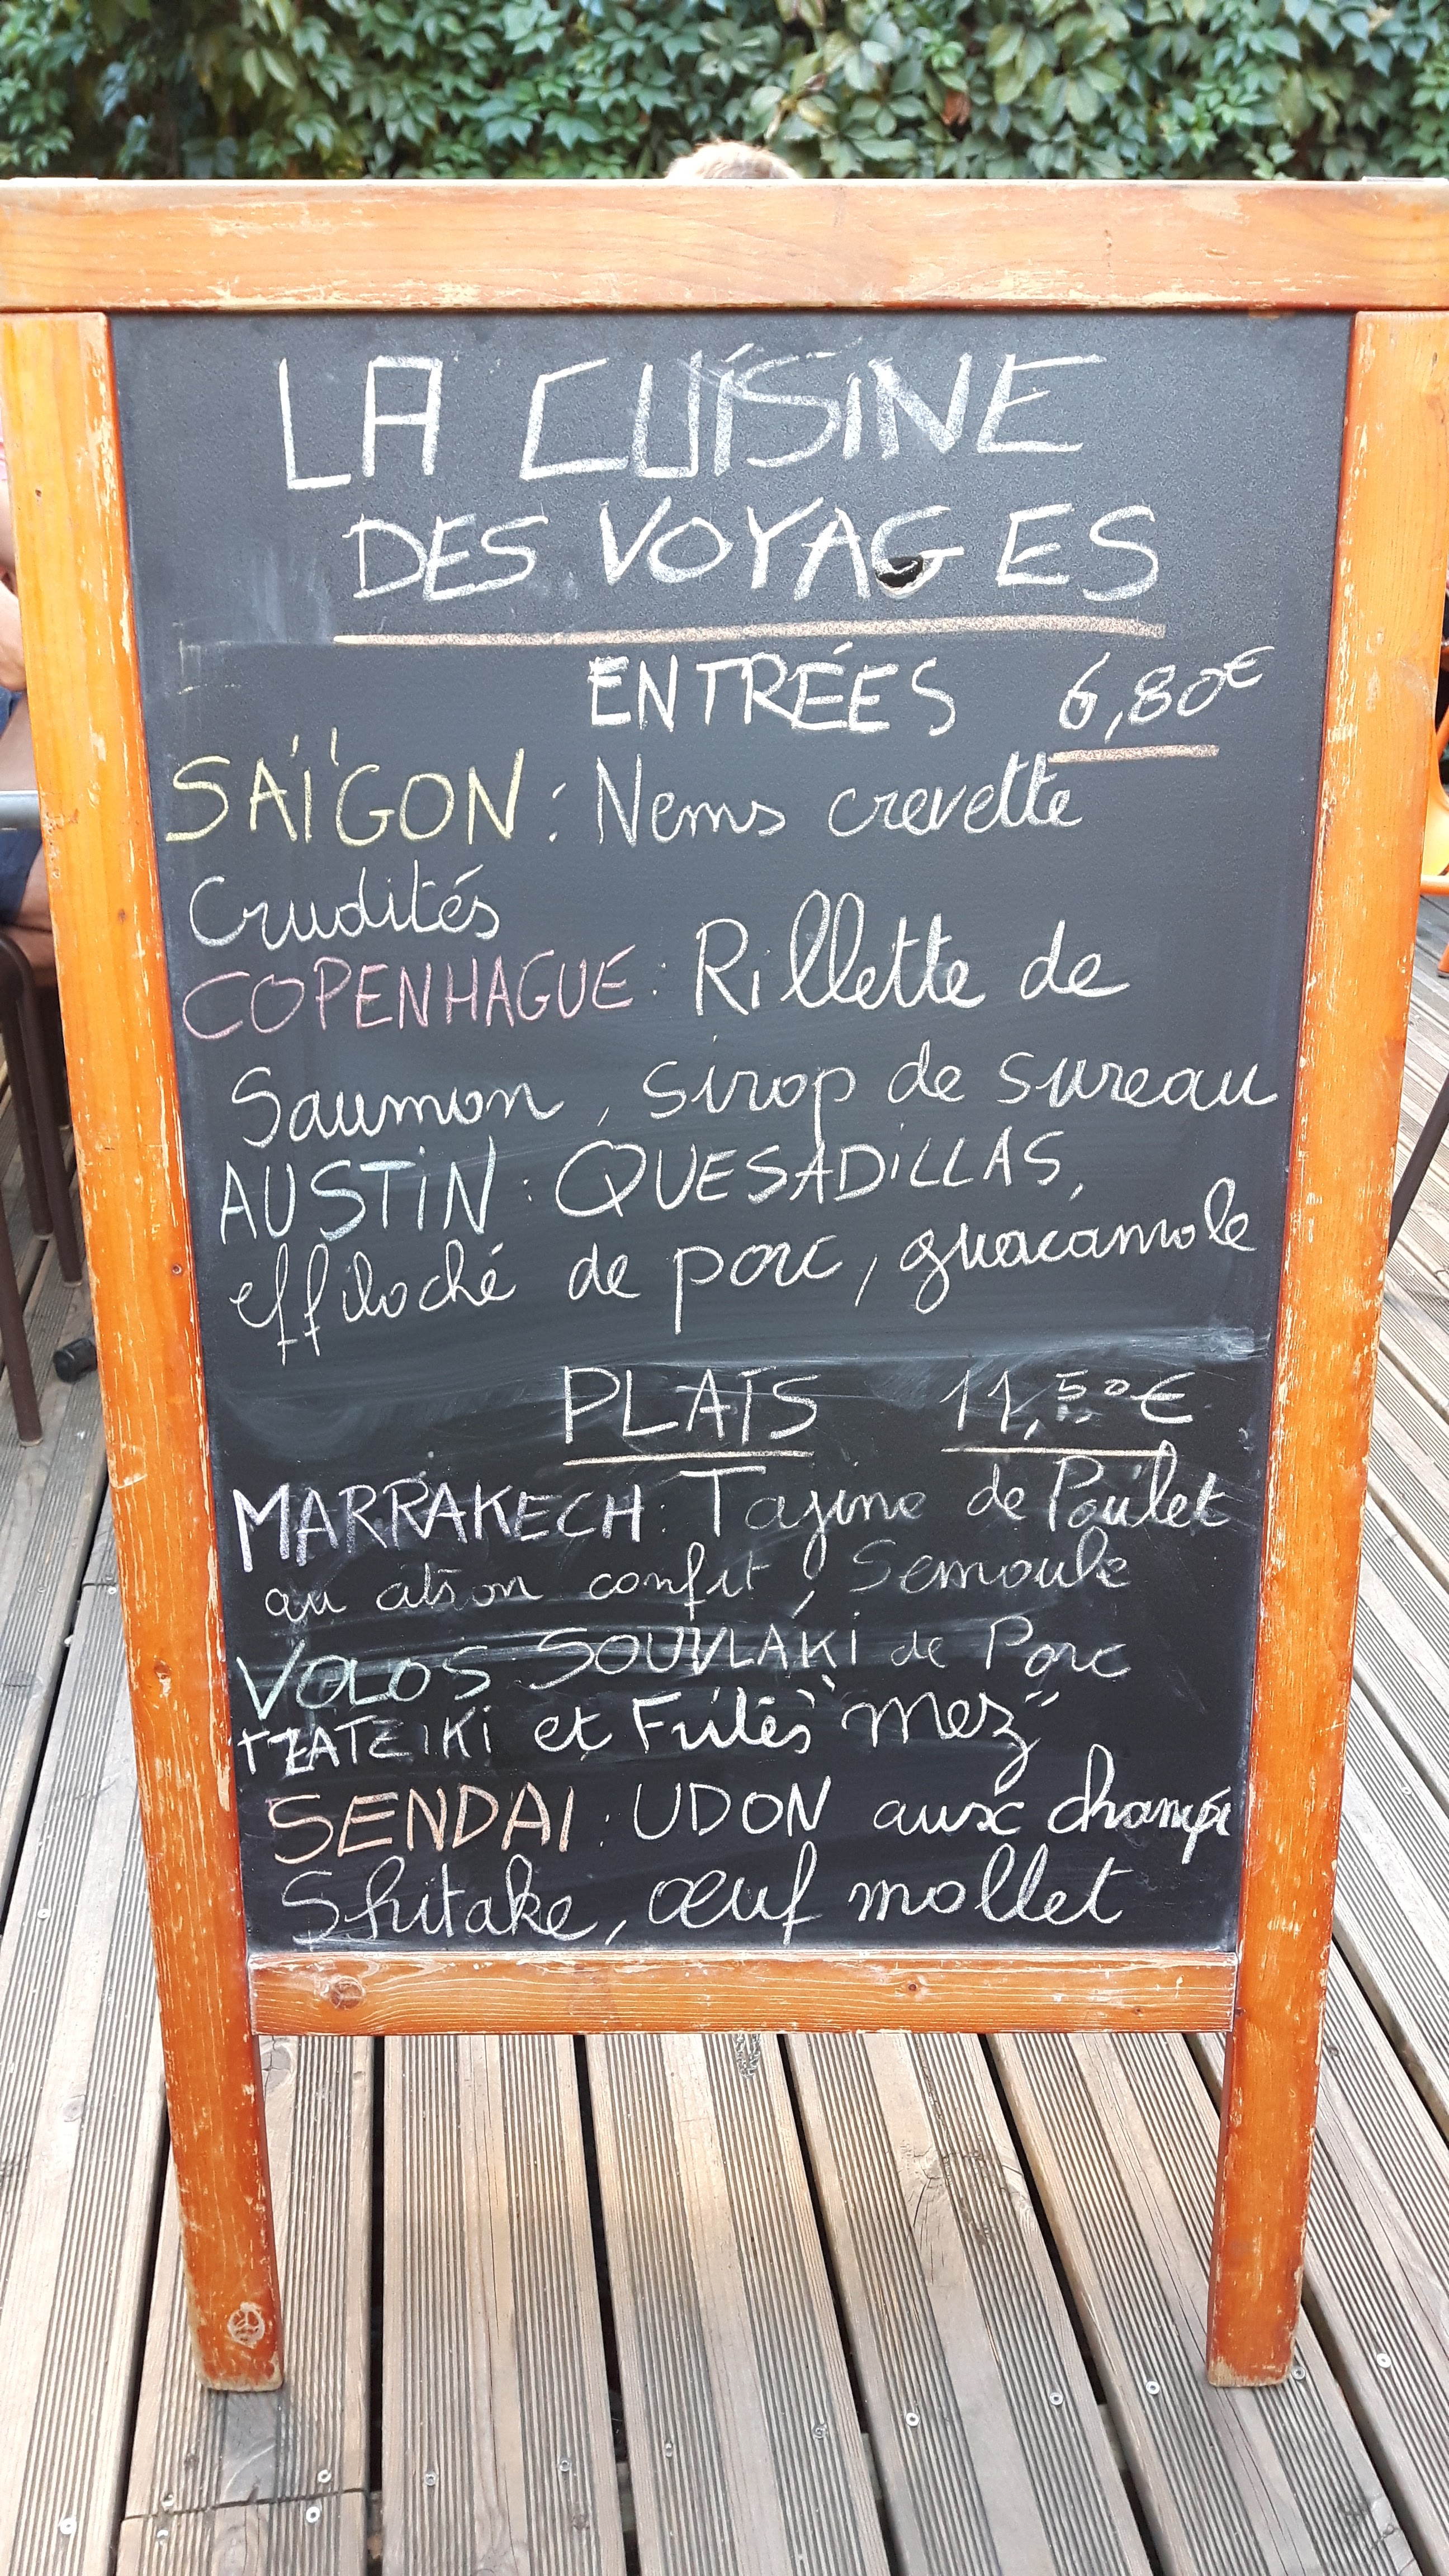 LA CUISINE
DES VOYAGES
ENTRÉES 6,80€
SAÏGON : Nems crevette
Crudités
COPENHAGUE : Rillette de
Saumon, sirop de sureau
AUSTIN : QUESADILLAS,
effiloché de porc, guacamole
PLATS 11,50€
MARRAKECH : Tajine de Poulet
au citron confit, Semoule
VOLOS SOUVLAKI de Porc
TZATZIKI et Frites "mez"
SENDAI : UDON aux champi
Shitake, œuf mollet